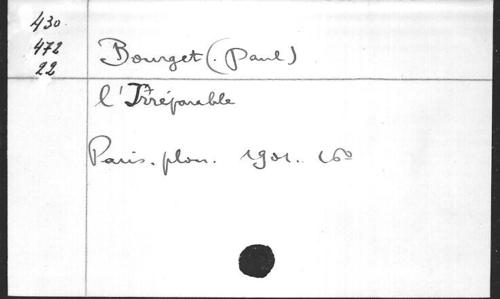 430.
472
22
Bourget (. Paul)
l'Irréparable
Paris. plon. 1901. 16º